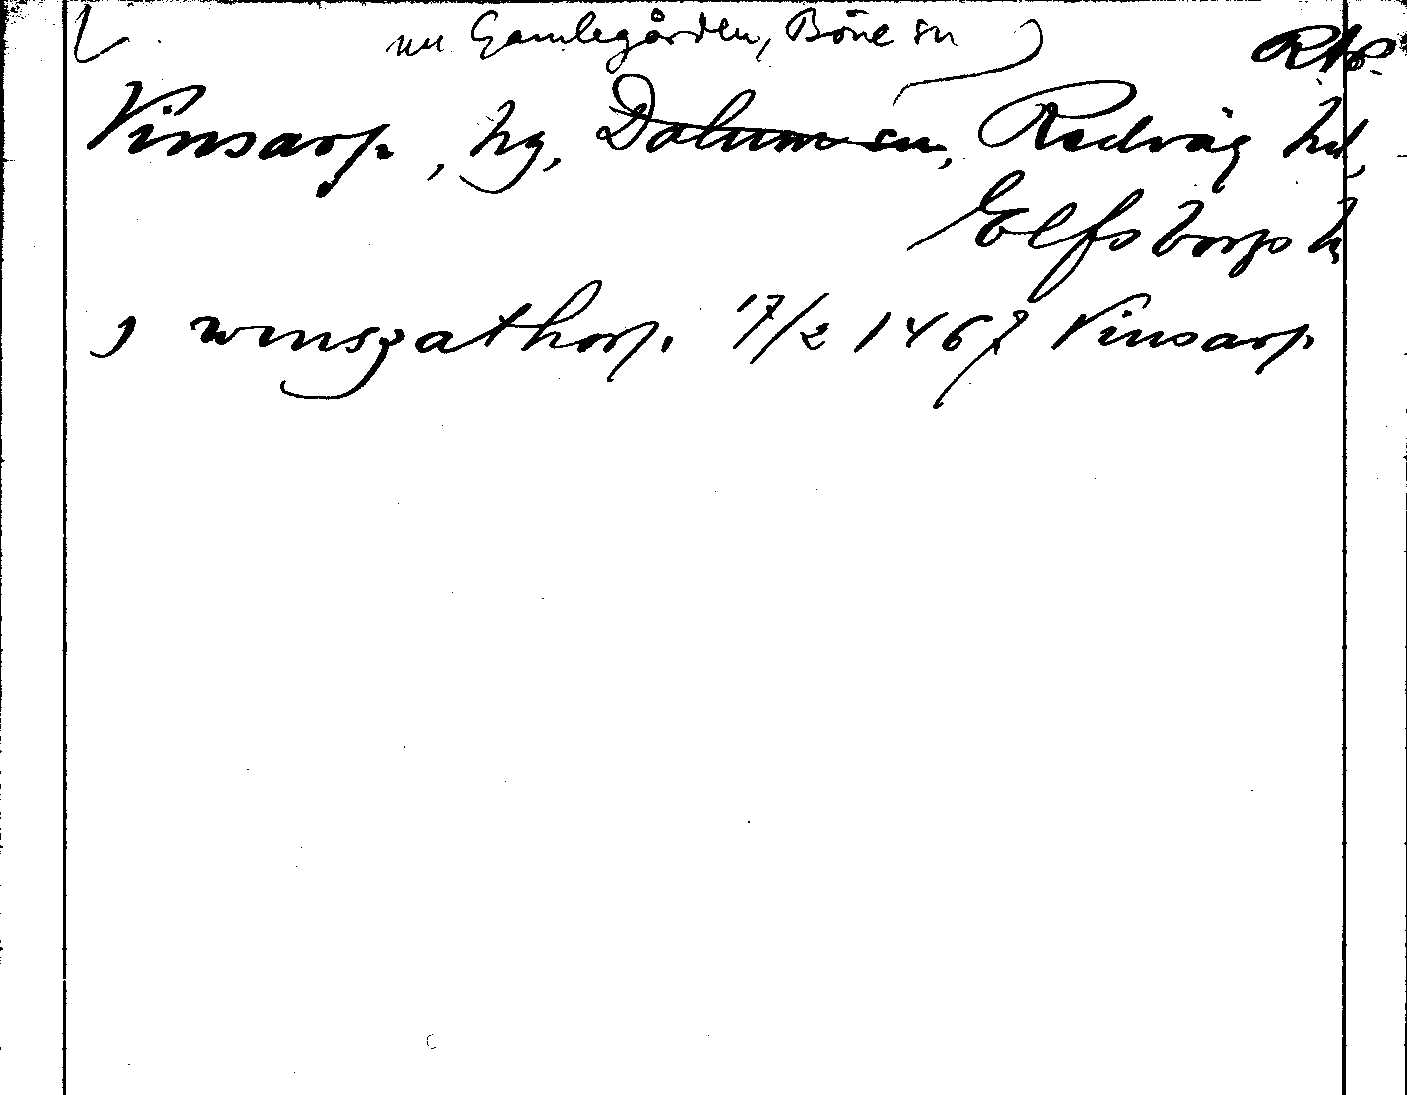 nu Gamlegården, Böne sn
Vinsarp, hg, Dalum sn, Redväg hd,
Elfsborgs l
j wenszathorp. 17/2 1467 Vinsarp